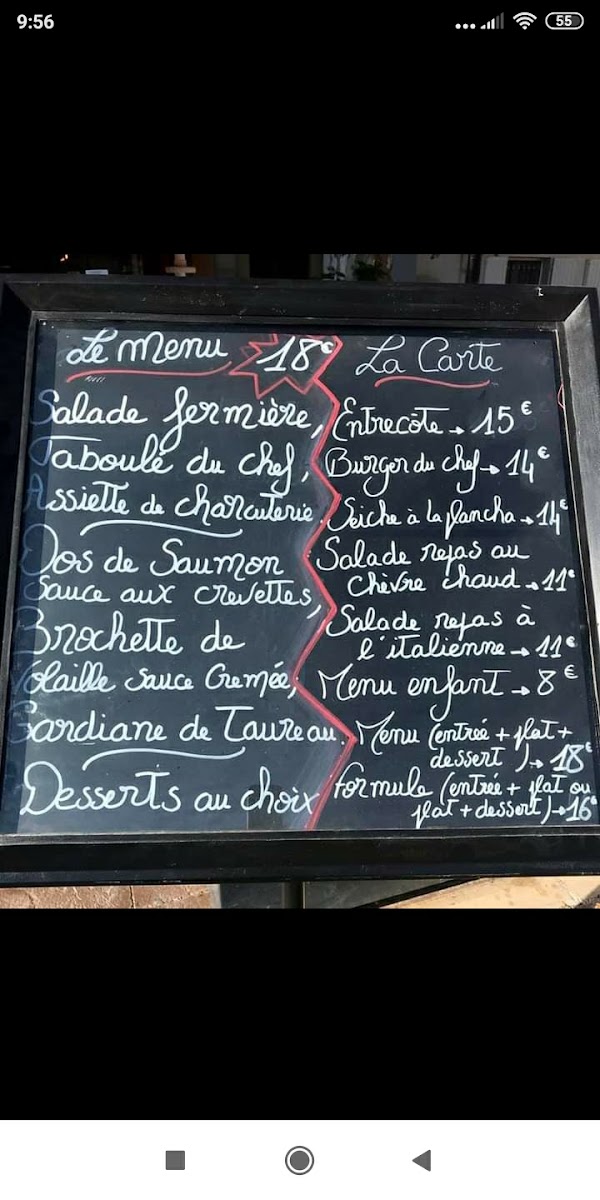 9:56
55
Le Menu 18€
Salade fermière,
Taboulé du chef,
Assiette de charcuterie.
Dos de Saumon
Sauce aux crevettes,
Brochette de
Volaille sauce Cremée,
Gardiane de Taureau.
Desserts au choix
La Carte
Entrecôte → 15€
Burger du chef → 14€
Seiche à la plancha → 14€
Salade repas au
Chèvre chaud → 11€
Salade repas à
l'italienne → 11€
Menu enfant → 8€
Menu (entrée + plat +
dessert) → 18€
formule (entrée + plat ou
plat + dessert) → 16€